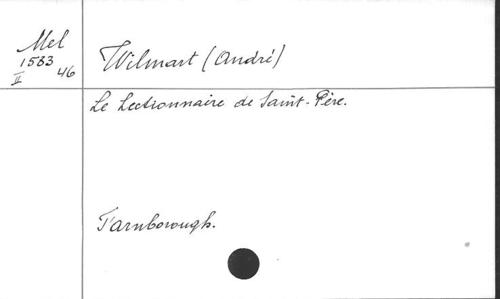 Mel
1583
II 46
Wilmart (André)
Le Lectionnaire de Saint-Père.
Farnborough.